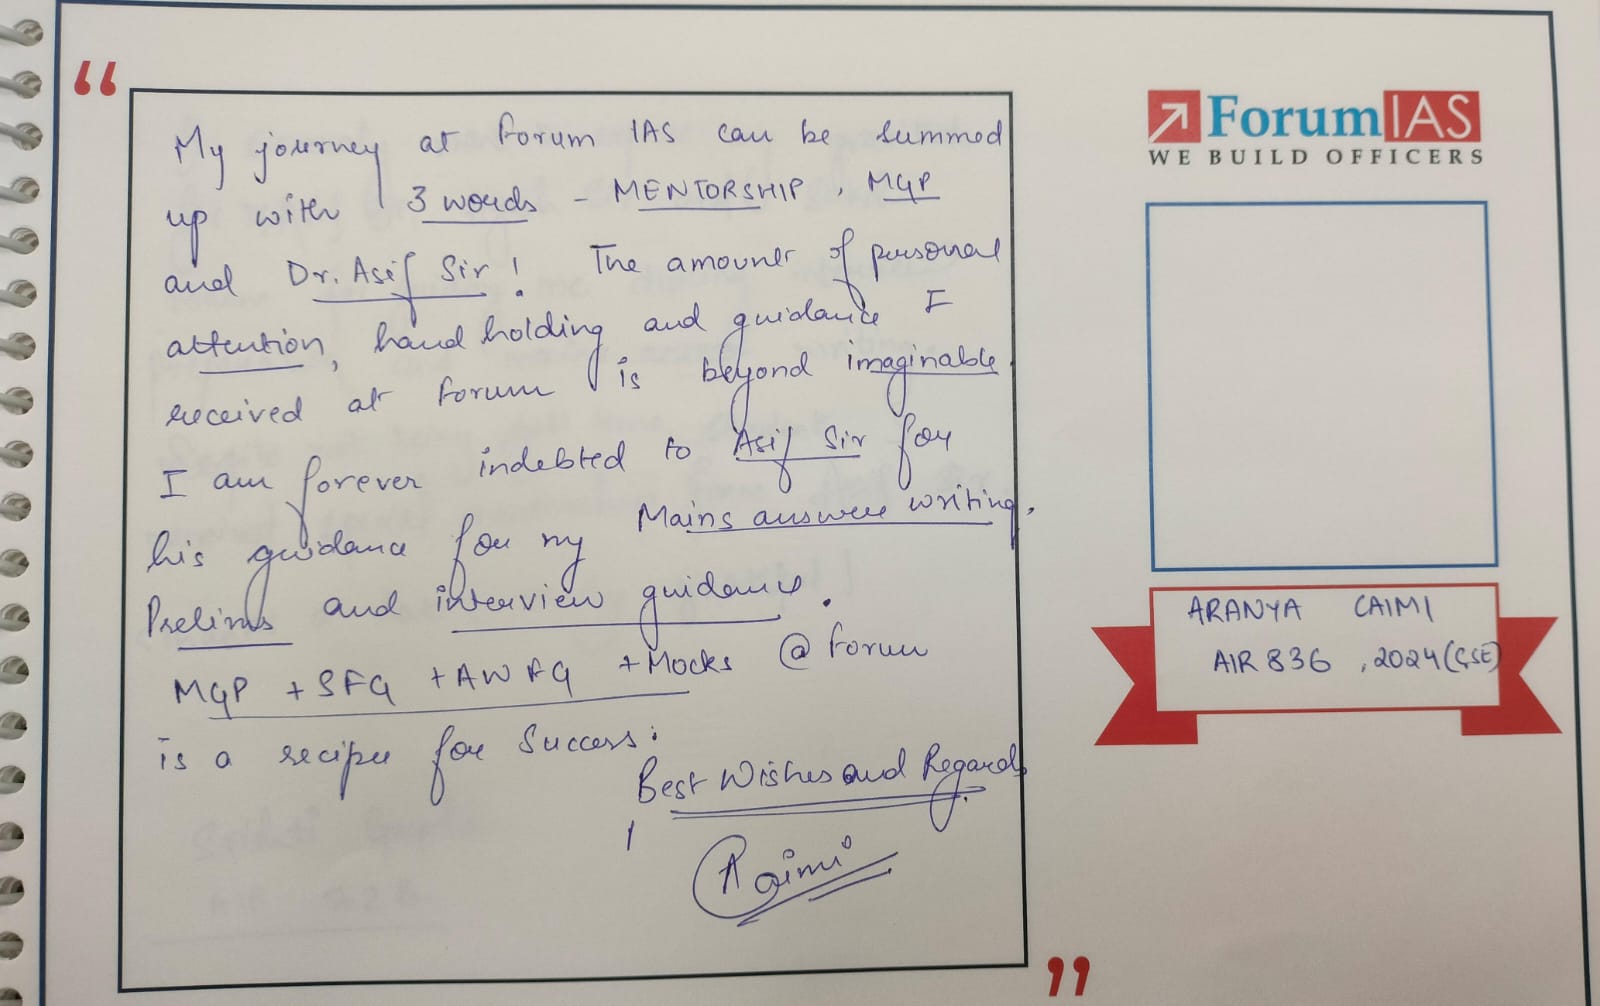 My journey at Forum IAS can be summed
up with 3 words - MENTORSHIP, MGP
and Dr. Asif Sir! The amount of personal
attention, hand holding and guidance I
received at Forum is beyond imaginable.
I am forever indebted to Asif Sir for
his guidance for my Mains answer writing,
Prelims and interview guidance.
MGP + SFG + AWFG + Mocks @ Forum
is a recipe for Success.
Best Wishes and Regards.
ForumIAS
WE BUILD OFFICERS
ARANYA CAIMI
AIR 836, 2024 (CSE)